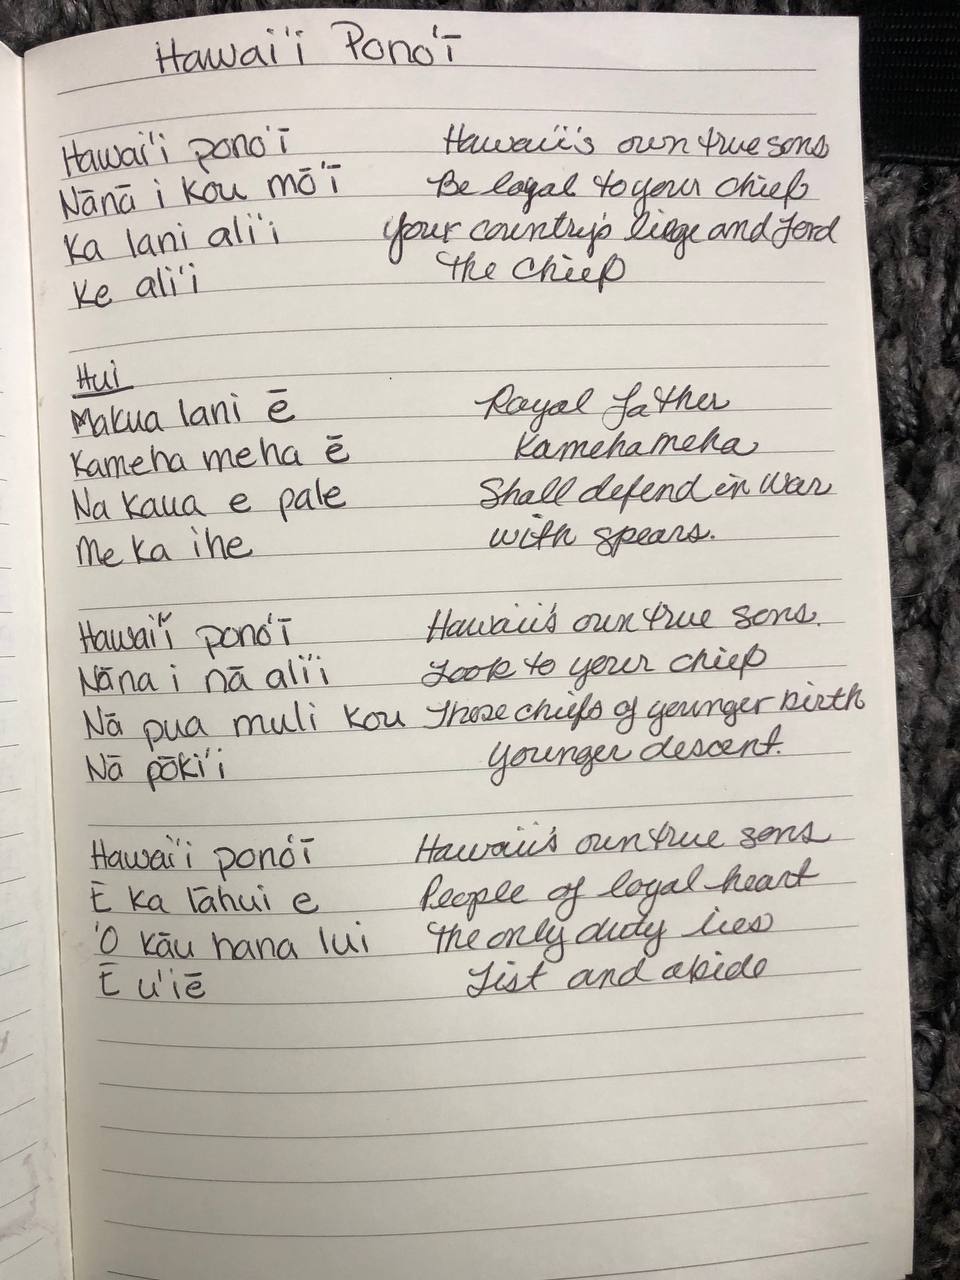 Hawai'i Pono'ī
Hawai'i pono'ī Hawaii's own true sons
Nānā i kou mō'ī Be loyal to your chief
Ka lani ali'i your country's liege and Lord
Ke ali'i the chief
Hui
Makua lani ē Royal father
Kameha meha ē Kamehameha
Na kaua e pale Shall defend in war
Me ka ihe with spears.
Hawai'i pono'ī Hawaii's own true sons.
Nāna i nā ali'i Look to your chief
Nā pua muli kou Those chiefs of younger birth
Nā pōki'i younger descent.
Hawai'i pono'ī Hawaii's own true sons
Ē ka lāhui e People of loyal heart
'O kāu hana lui the only duty lies
Ē u'iē List and abide